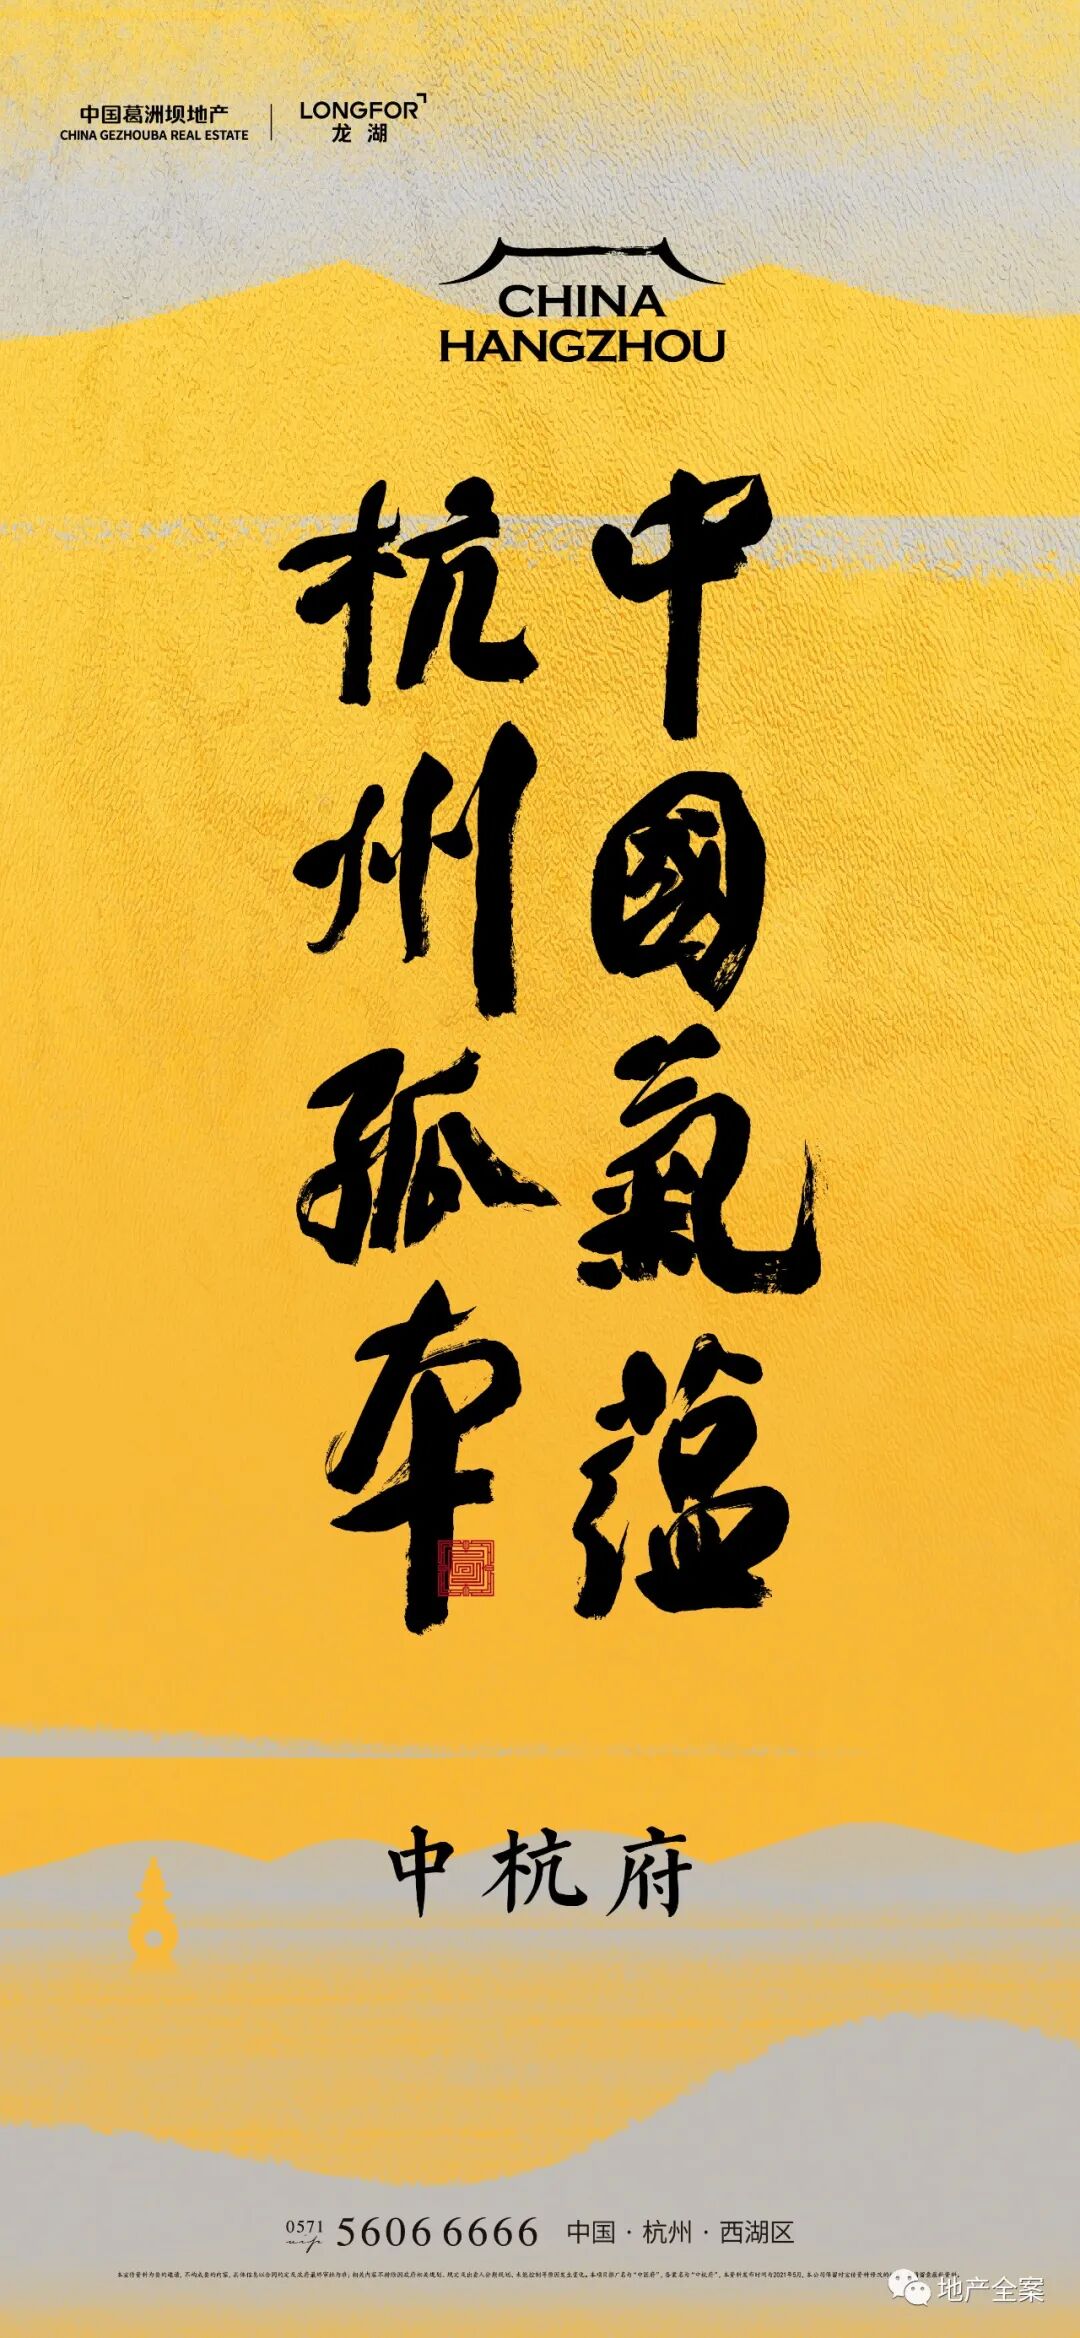 中国葛洲坝地产
CHINA GEZHOUBA REAL ESTATE
LONGFOR
龙湖
CHINA
HANGZHOU
中國氣蕴
杭州孤本
中杭府
0571
vip
5606 6666
中国·杭州·西湖区
地产全案